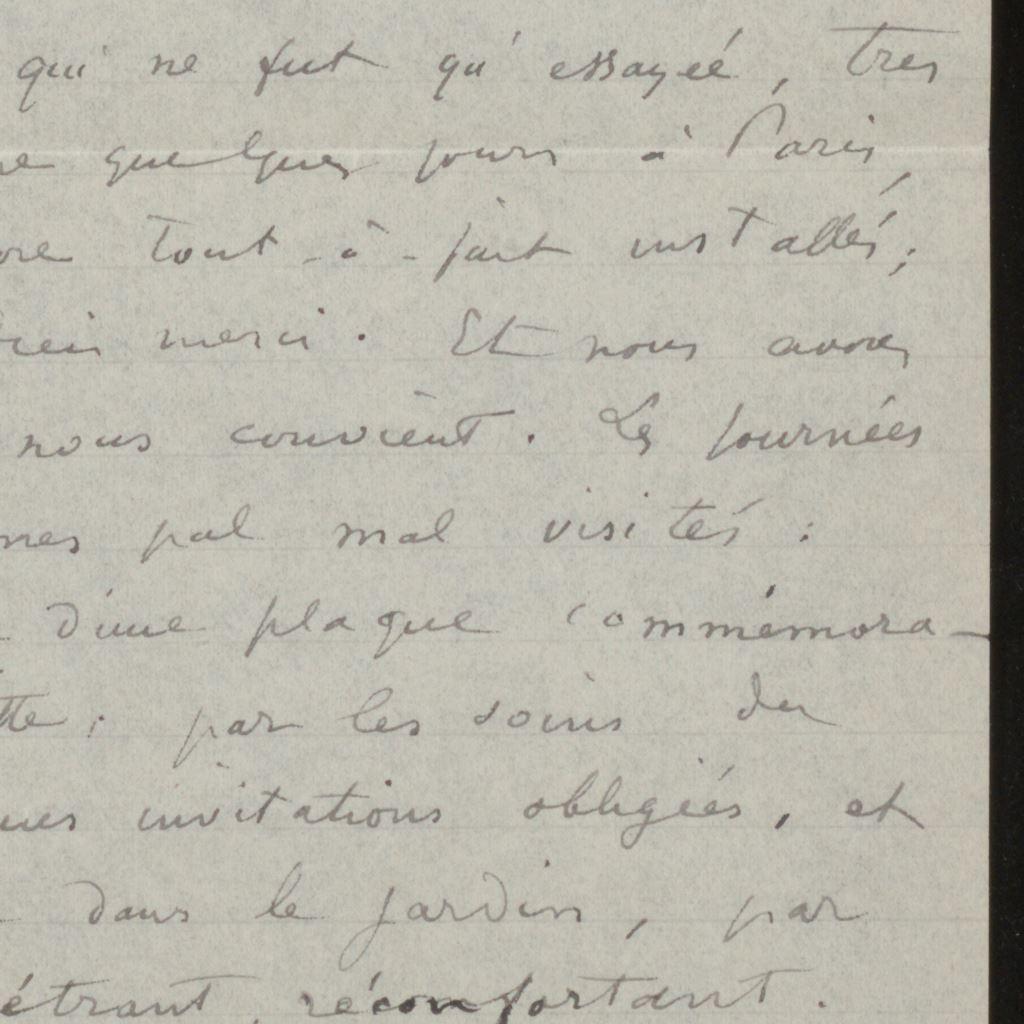 qui ne fut qu'essayée, tres
quelques jours à Paris,
tout-à-fait installés;
merci. Et nous avons
nous convient. Les journées
pas mal visités :
d'une plaque commémora-
par les soins du
invitations obligées, et
dans le jardin, par
étrant, réconfortant.